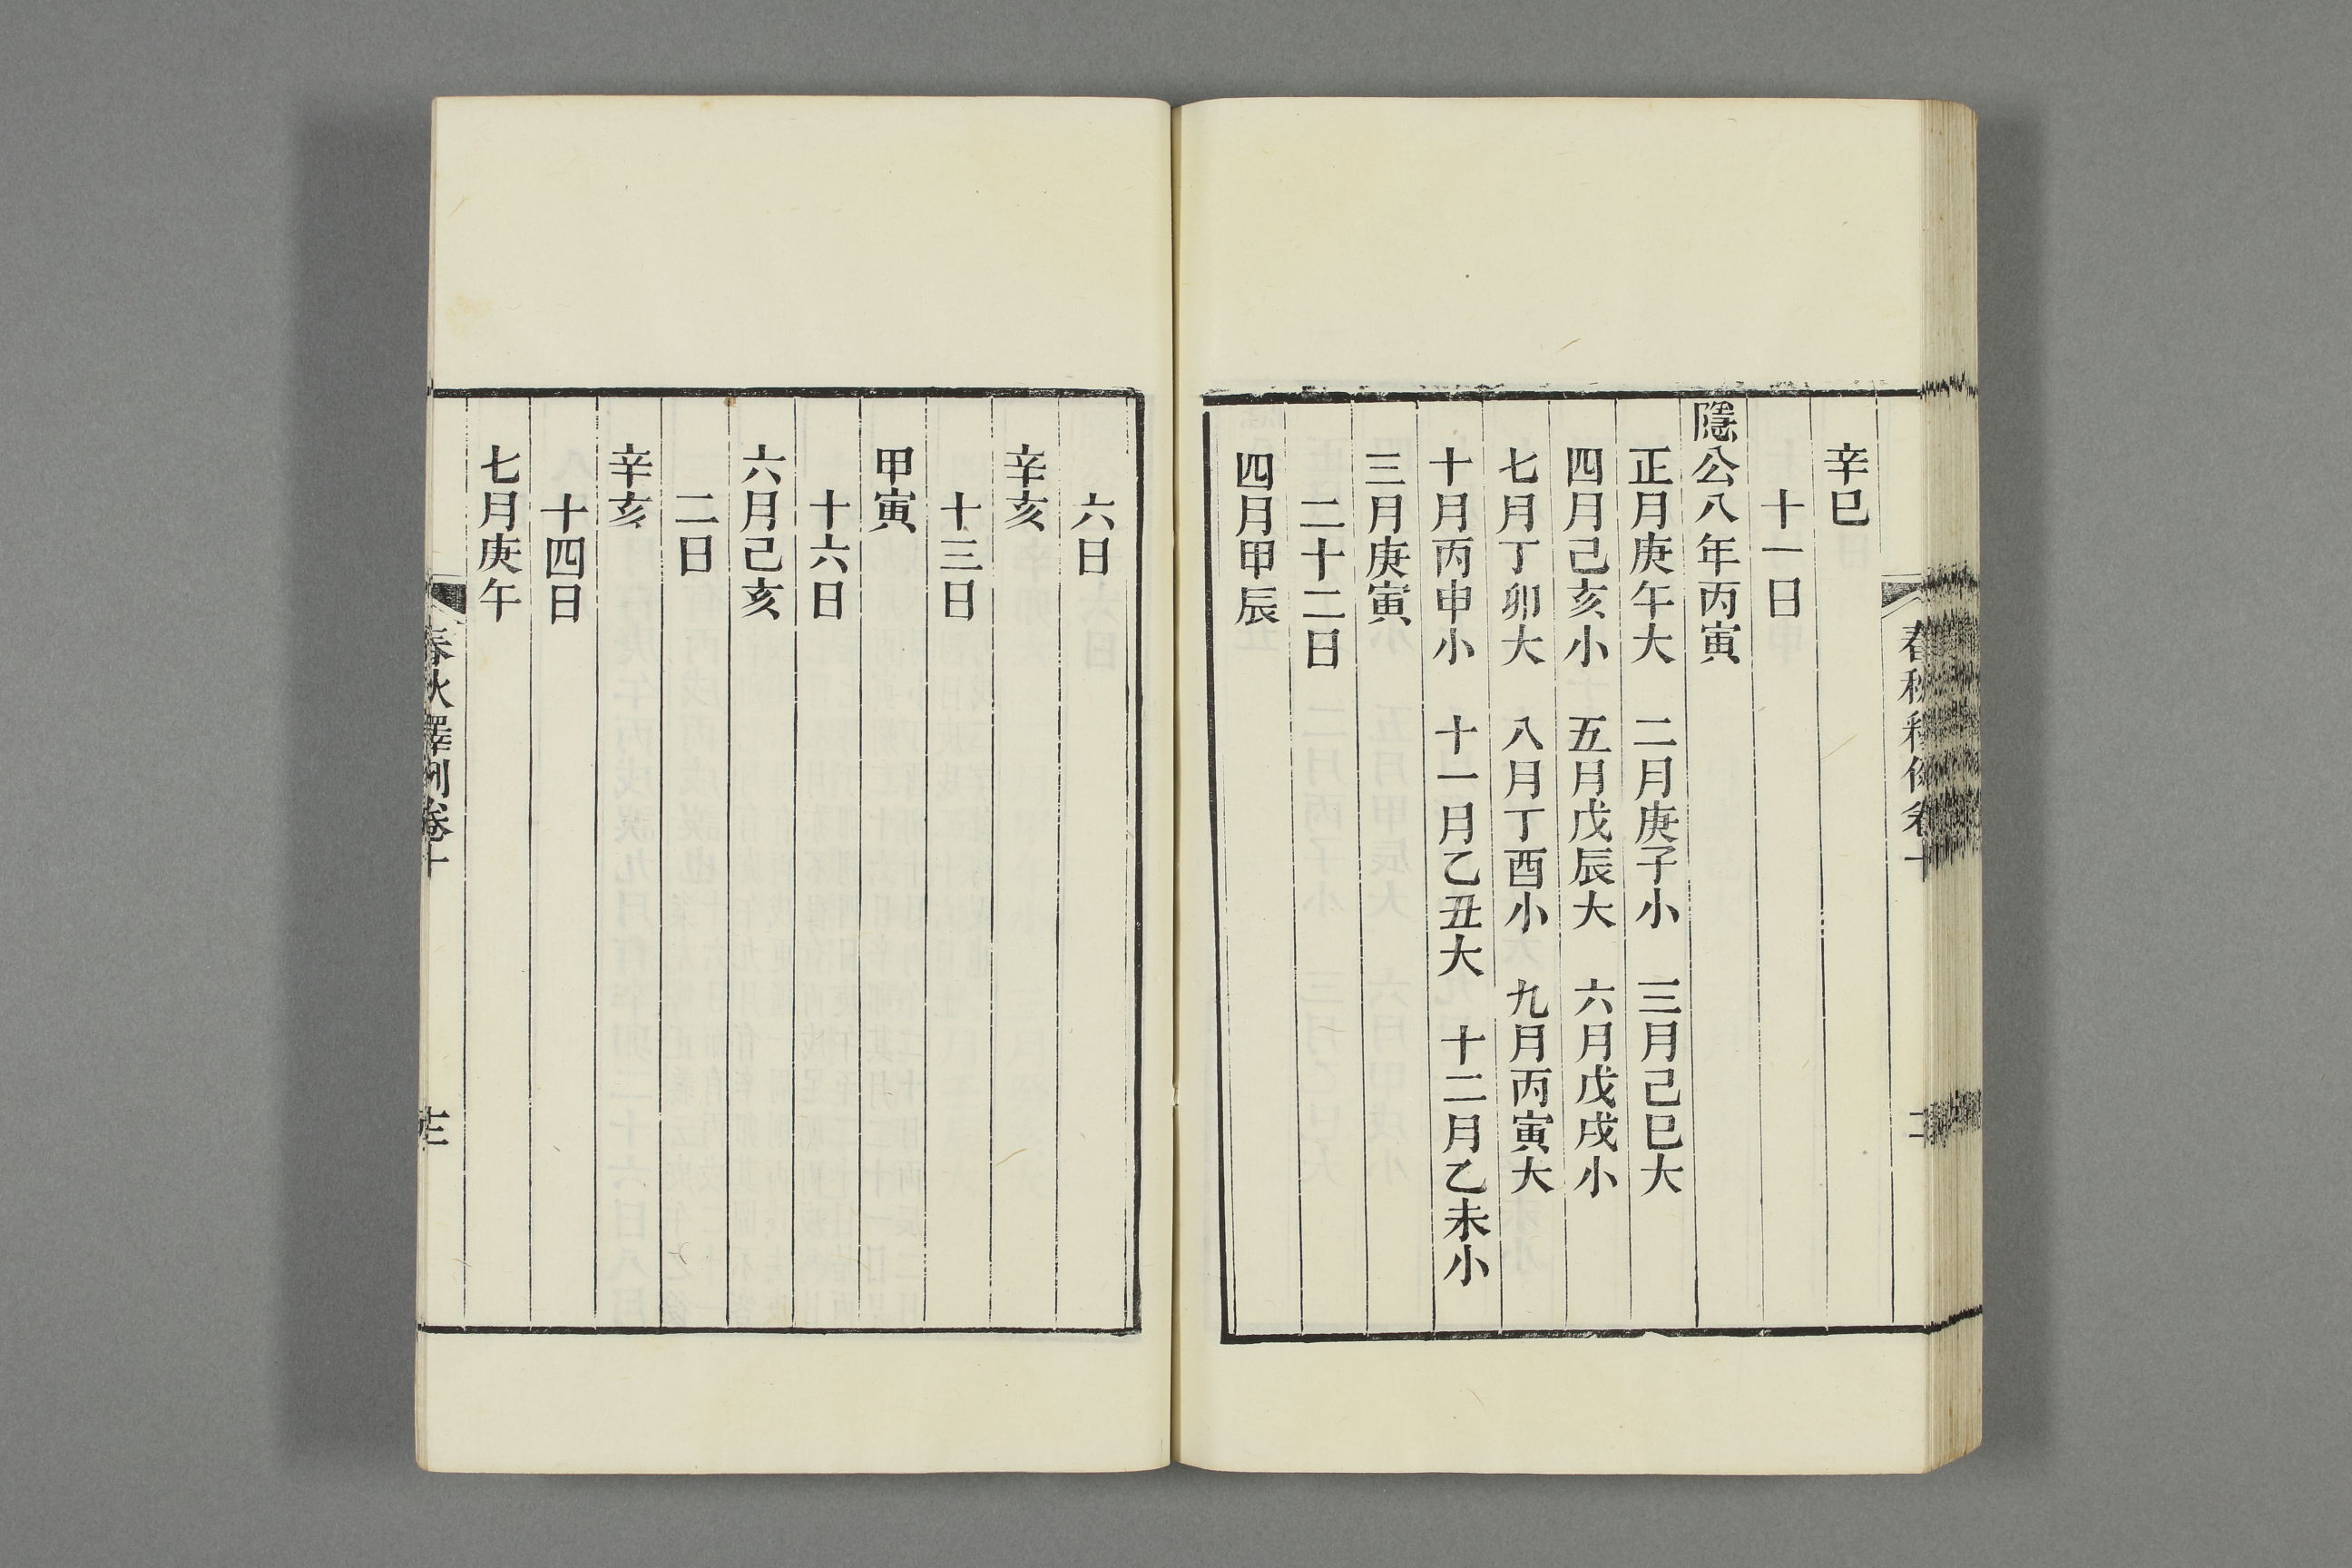 辛巳
十一日
隱公八年丙寅
正月庚午大　二月庚子小　三月己巳大
四月己亥小　五月戊辰大　六月戊戌小
七月丁卯大　八月丁酉小　九月丙寅大
十月丙申小　十一月乙丑大　十二月乙未小
三月庚寅
二十二日
四月甲辰
六日
辛亥
十三日
甲寅
十六日
六月己亥
二日
辛亥
十四日
七月庚午
春秋釋例卷十